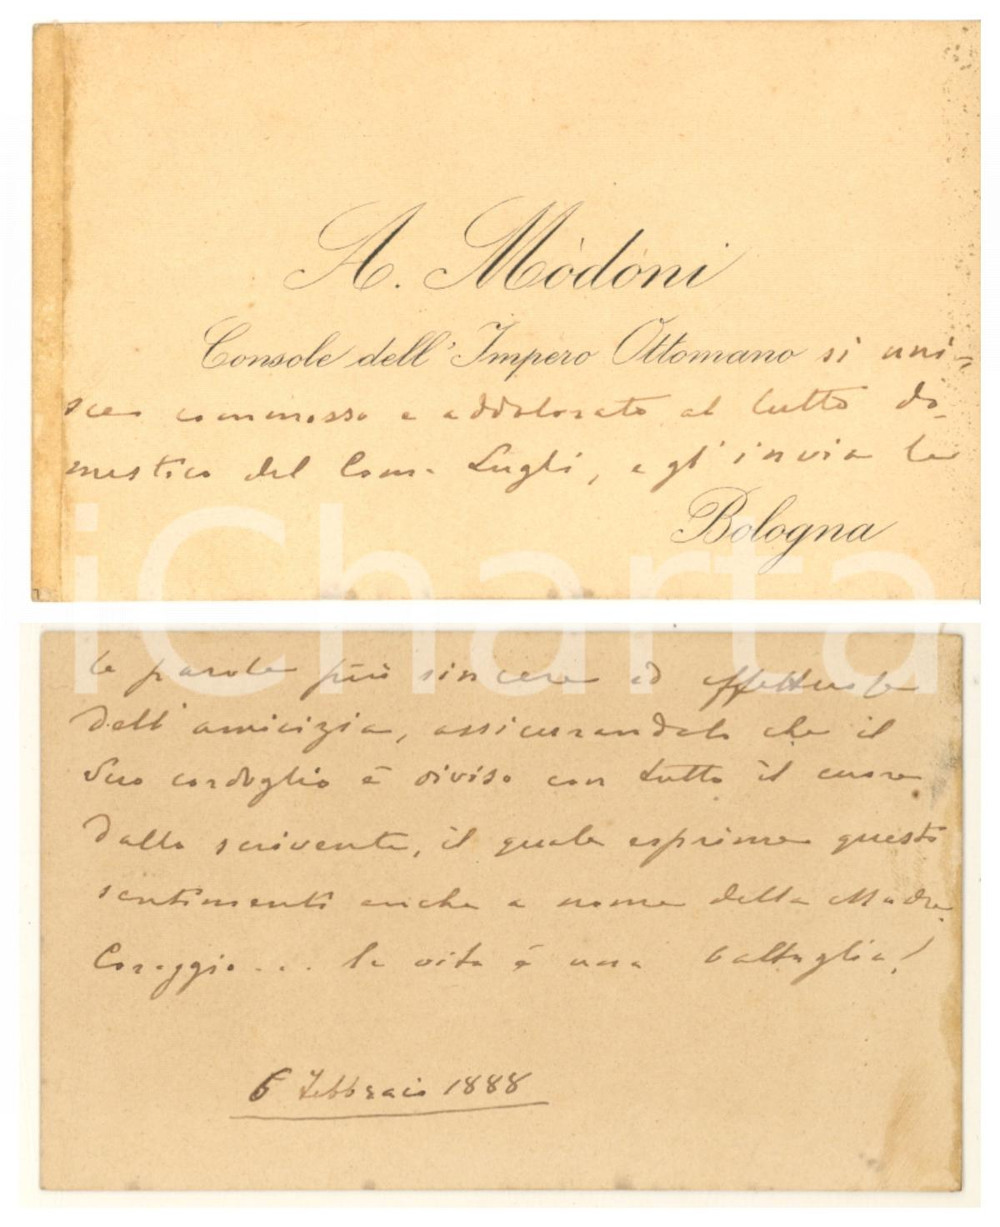 A. Mòdóni
Console dell' Impero Ottomano si uni-
sce commosso e addolorato al lutto do-
mestico del Com. Lugli, e gl'invia le
Bologna
iCharta
le parole più sincere ed affettuose
dell'amicizia, assicurandolo che il
Suo cordoglio è diviso con tutto il cuore
dallo scrivente, il quale esprime questi
sentimenti anche a nome della Madre.
Coraggio... la vita è una battaglia!
6 Febbraio 1888